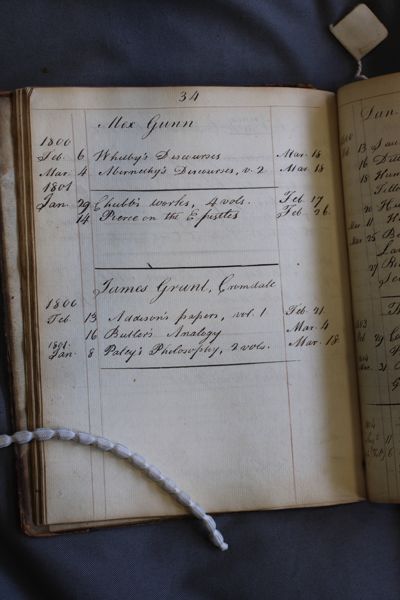 34
Alex Gunn
1800
Feb. 6 Whitby's Discourses Mar. 18
Mar. 4 Abernethy's Discourses, v. 2 Mar. 18
1801
Jan. 29 Chubb's works, 4 vols. Feb. 17
14 Pierce on the Epistles Feb. 26.
James Grant, Cromdale
1800
Feb. 13 Addison's papers, vol. 1 Feb. 21
16 Butler's Analogy Mar. 4
1801.
Jan. 8 Paley's Philosophy, 2 vols. Mar. 18
Dan.